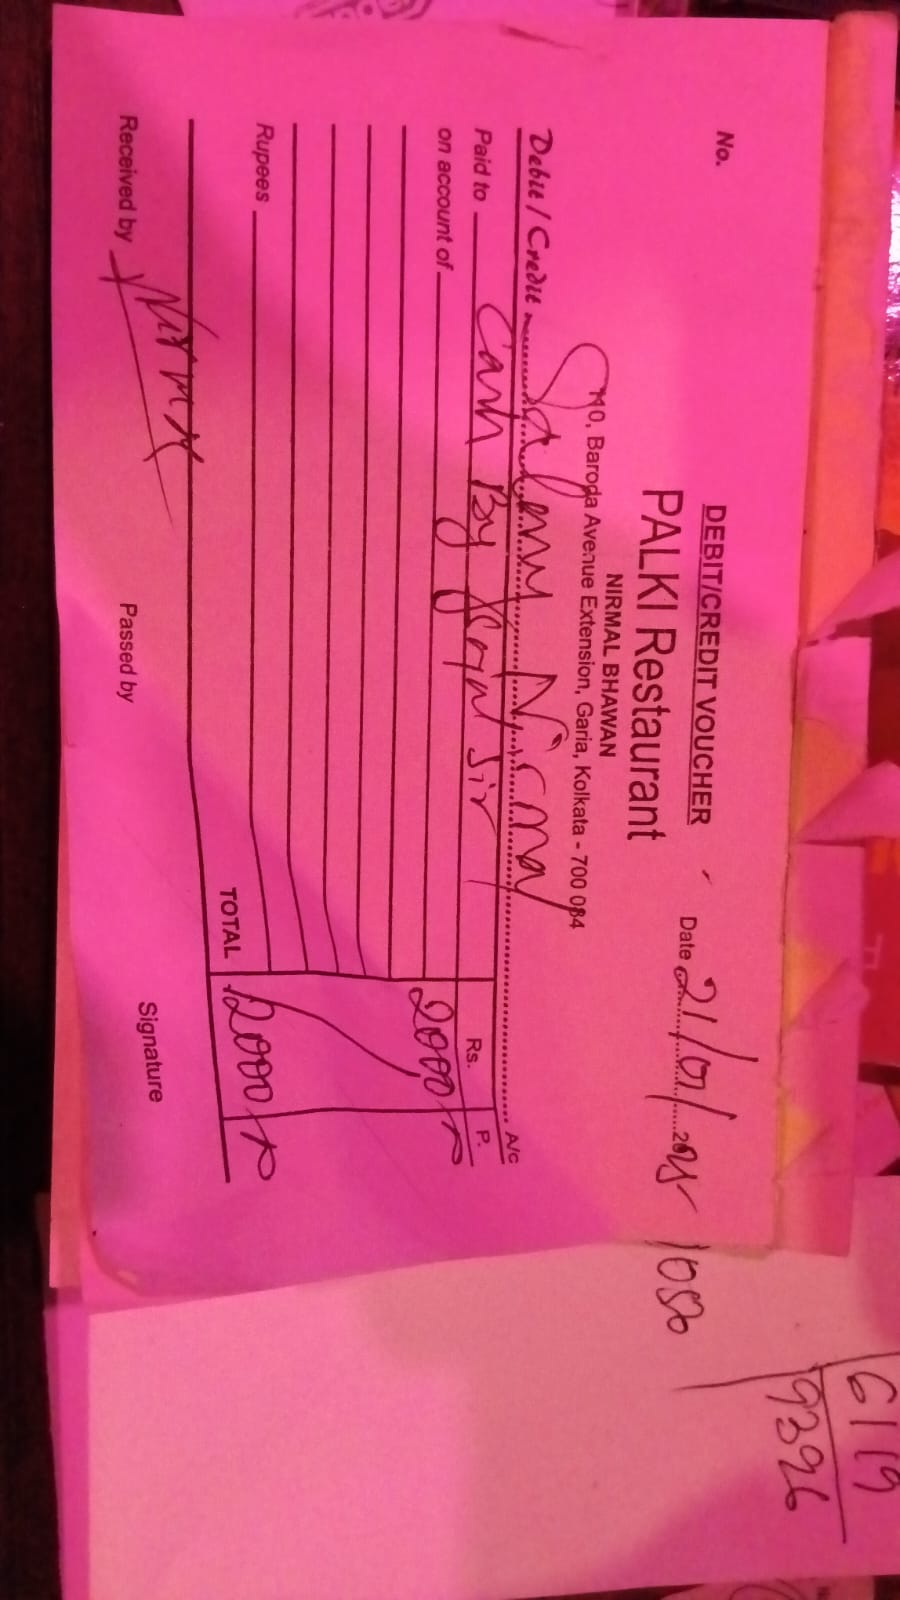 No.
DEBIT/CREDIT VOUCHER
PALKI Restaurant
NIRMAL BHAWAN
110, Baroda Avenue Extension, Garia, Kolkata - 700 084
Date 21/01/2025
Debit / Credit Salary Nirmal A/c
Paid to Cash By Sir Rs. P.
on account of 2000
Rupees
TOTAL 2000
Received by Passed by Signature
6119
9396